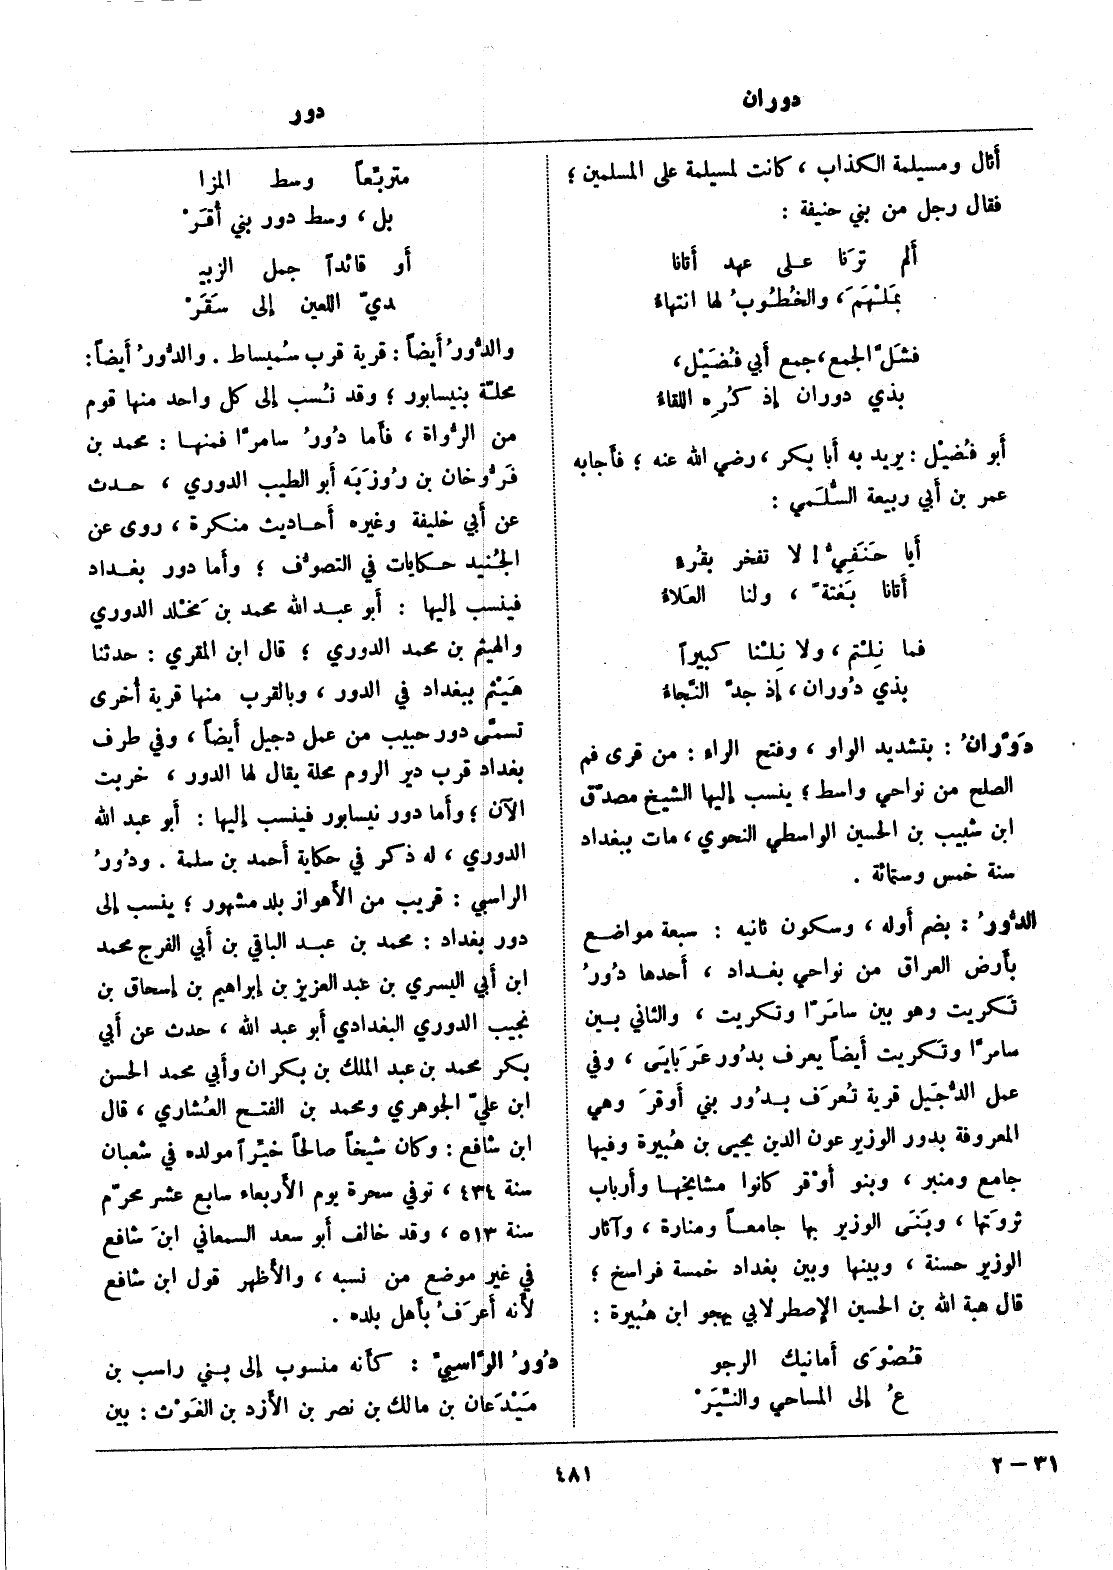 دوران
دور
أثال ومسيلمة الكذاب ، كانت لمسيلمة على المسلمين ؛
فقال رجل من بني حنيفة :
ألم ترَنا على عهد أتانا
بمَلْهَمَ ، والخُطُوبُ لها انتهاءُ
فشَلَّ الجمعَ ، جمع أبي فُضَيْل ،
بذي دوران إذ كُرِه اللقاءُ
أبو فُضَيْل : يريد به أبا بكر ، رضي الله عنه ؛ فأجابه
عمر بن أبي ربيعة السُّلَمي :
أيا حَنَفِيُّ ! لا تفخر بقُرء
أتانا بَغتةً ، ولنا العَلاءُ
فما نِلْتم ، ولا نِلْنا كبيراً
بذي دُوران ، إذ جدَّ النَّجاءُ
دَوَّرانُ : بتشديد الواو ، وفتح الراء : من قرى فم
الصلح من نواحي واسط ؛ ينسب إليها الشيخ مصدّق
ابن شبيب بن الحسين الواسطي النحوي ، مات ببغداد
سنة خمس وستمائة .
الدُّورُ : بضم أوله ، وسكون ثانيه : سبعة مواضع
بأرض العراق من نواحي بغداد ، أحدها دُورُ
تكريت وهو بين سامَرّا وتكريت ، والثاني بين
سامرّا وتكريت أيضاً يعرف بدُور عَرَبايَى ، وفي
عمل الدُّجَيل قرية تُعرَف بدُور بني أوقرَ وهي
المعروفة بدور الوزير عون الدين يحيى بن هُبيرة وفيها
جامع ومنبر ، وبنو أوْقر كانوا مشايخها وأرباب
ثروَتها ، وبَنَى الوزير بها جامعاً ومنارة ، وآثار
الوزير حسنة ، وبينها وبين بغداد خمسة فراسخ ؛
قال هبة الله بن الحسين الإصطرلابي يهجو ابن هُبيرة :
قُصْوَى أمانيك الرجو
عُ إلى المساحي والنّيَرْ
متربّعاً وسط المزا
بل ، وسط دور بني أقَرْ
أو قائداً جمل الزبيـ
ـديّ اللعين إلى سَقَرْ
والدُّورُ أيضاً : قرية قرب سُميساط . والدُّورُ أيضاً :
محلّة بنيسابور ؛ وقد نُسب إلى كل واحد منها قوم
من الرُّواة ، فأما دُورُ سامرّا فمنها : محمد بن
فَرُّوخان بن رُوزبَه أبو الطيب الدوري ، حدث
عن أبي خليفة وغيره أحاديث منكرة ، روى عن
الجُنيد حكايات في التصوُّف ؛ وأما دور بغداد
فينسب إليها : أبو عبد الله محمد بن مَخْلد الدوري
والهيثم بن محمد الدوري ؛ قال ابن المقري : حدثنا
هَيْثم ببغداد في الدور ، وبالقرب منها قرية أخرى
تسمَّى دور حبيب من عمل دجيل أيضاً ، وفي طرف
بغداد قرب دير الروم محلة يقال لها الدور ، خربت
الآن ؛ وأما دور نيسابور فينسب إليها : أبو عبد الله
الدوري ، له ذكر في حكاية أحمد بن سلمة . ودُورُ
الراسبي : قريب من الأهواز بلد مشهور ؛ ينسب إلى
دور بغداد : محمد بن عبد الباقي بن أبي الفرج محمد
ابن أبي اليسري بن عبد العزيز بن إبراهيم بن إسحاق بن
نجيب الدوري البغدادي أبو عبد الله ، حدث عن أبي
بكر محمد بن عبد الملك بن بكران وأبي محمد الحسن
ابن عليّ الجوهري ومحمد بن الفتح العُشاري ، قال
ابن شافع : وكان شيخاً صالحاً خيّراً مولده في شعبان
سنة ٤٣٤ ، توفي سحرة يوم الأربعاء سابع عشر محرّم
سنة ٥١٣ ، وقد خالف أبو سعد السمعاني ابنَ شافع
في غير موضع من نسبه ، والأظهر قول ابن شافع
لأنه أعرَفُ بأهل بلده .
دُورُ الرَّاسِبيّ : كأنه منسوب إلى بني راسب بن
مَيْدَعان بن مالك بن نصر بن الأزد بن الغَوْث : بين
٣١ – ٢
٤٨١